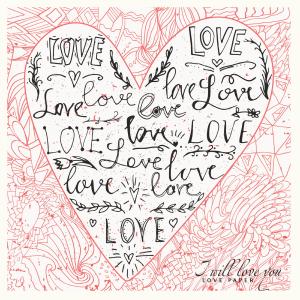 LOVE LOVE
love love Love
Love love
LOVE love LOVE
Love
love love love
LOVE
I will love you
LOVE PAPER